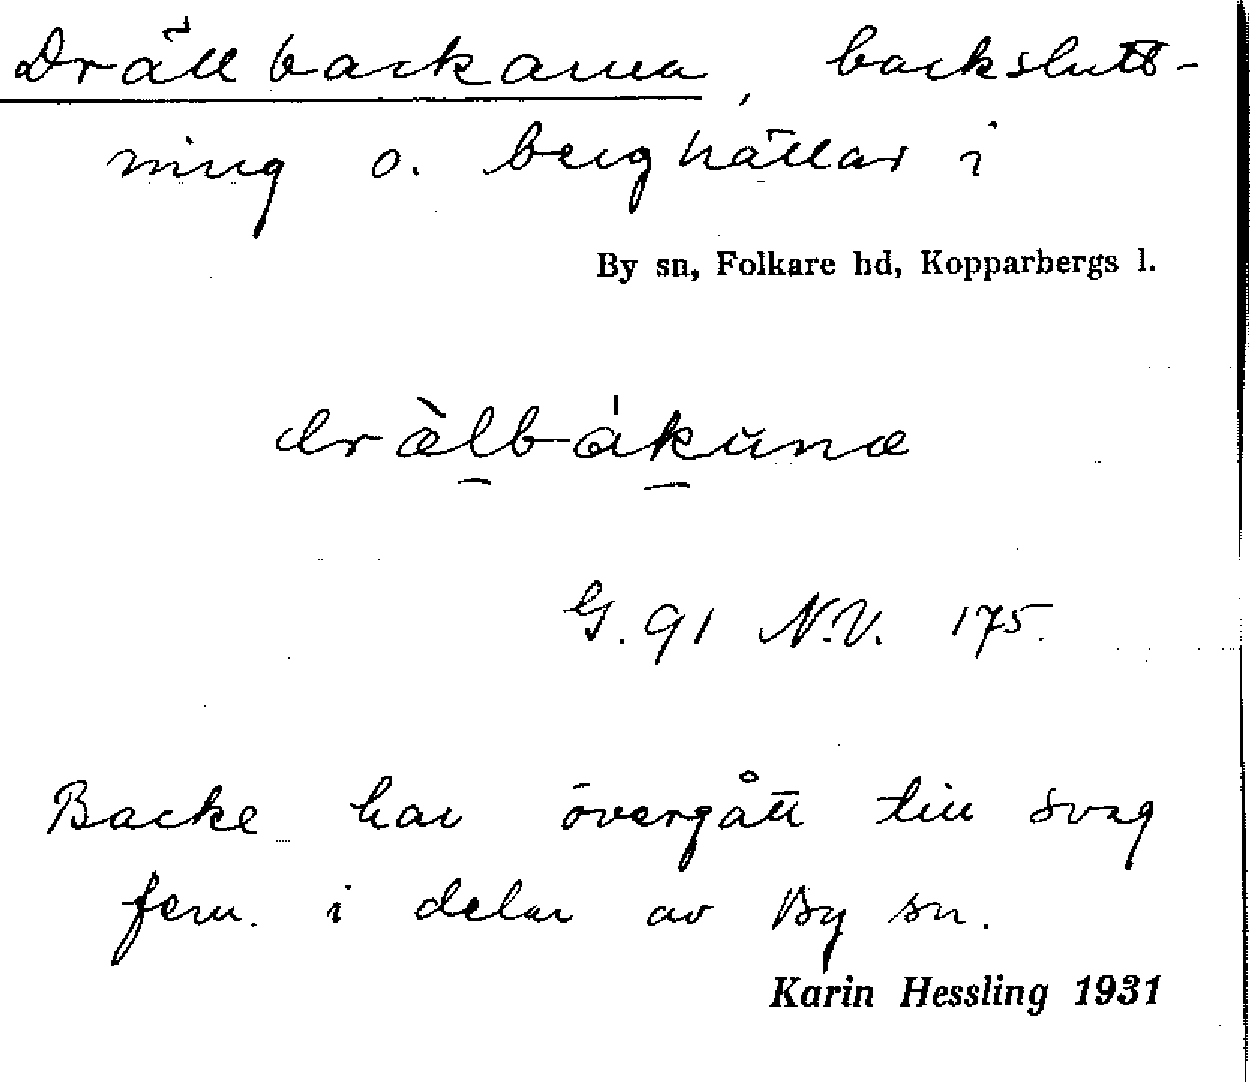 Drällbackarna, backslutt-
ning o. berghällar i
By sn, Folkare hd, Kopparbergs l.
dræ̀lbákŭnæ
G. 91 N.V. 175.
Backe har övergått till svag
fem. i delar av By sn.
Karin Hessling 1931